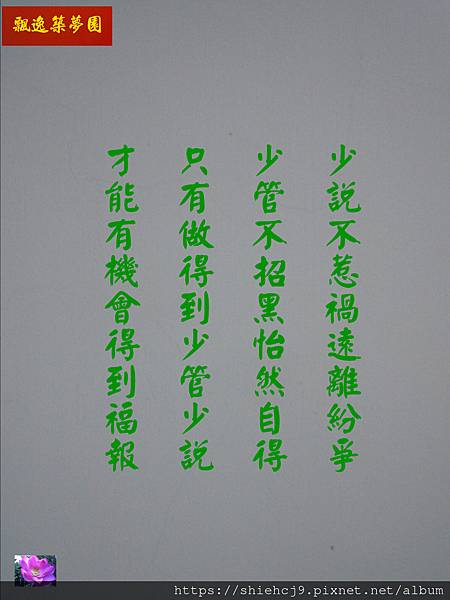 飄逸築夢園
少說不惹禍遠離紛爭
少管不招黑怡然自得
只有做得到少管少說
才能有機會得到福報
https://shiehcj9.pixnet.net/album